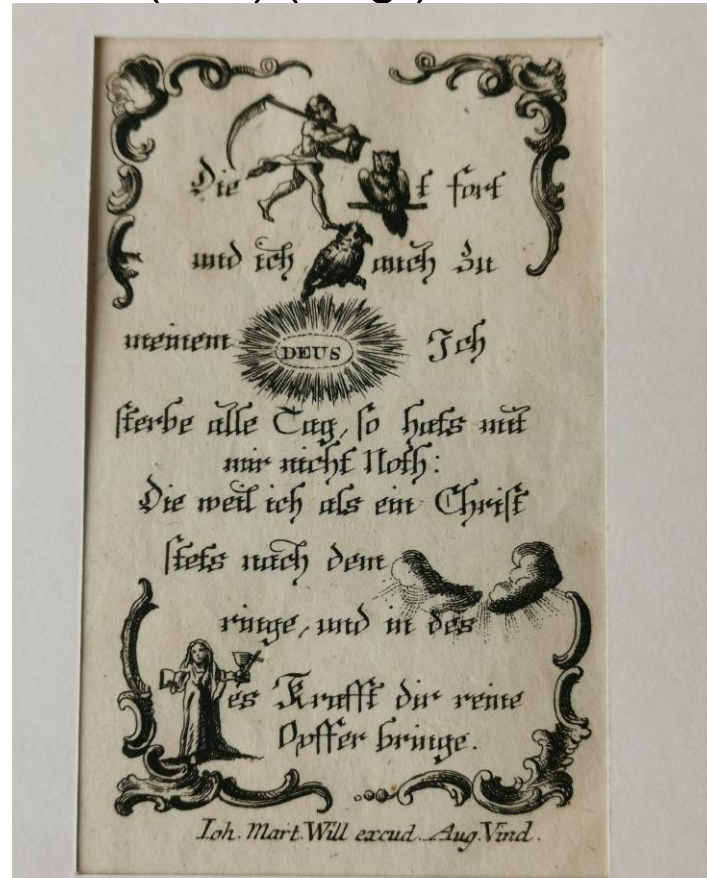 Die t fort
und ich auch zu
meinem DEUS Ich
sterbe alle Tag, so hats mit
mir nicht Noth:
Die weil ich als ein Christ
stets nach dem
ringe, und in des
es Krafft dir reine
Opffer bringe.
Ioh. Mart. Will excud. Aug. Vind.